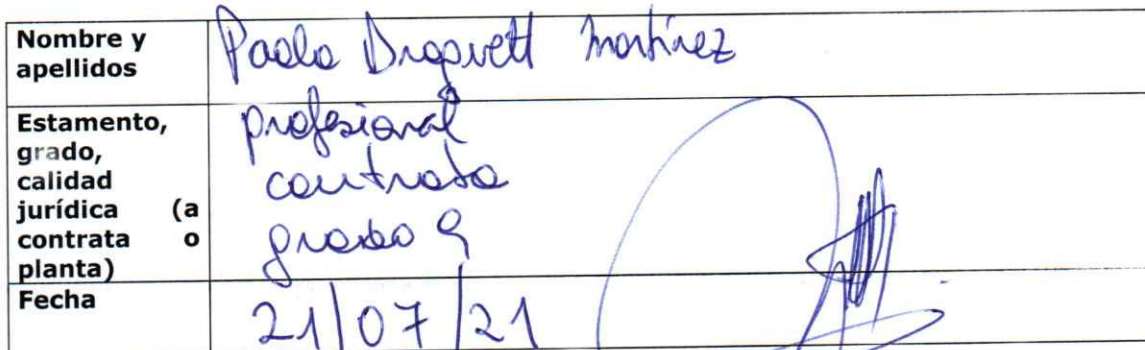 Nombre y apellidos Paola Drogvett Martínez
Estamento, grado, calidad jurídica (a contrata o planta) profesional
contrata
grado 9
Fecha 21/07/21